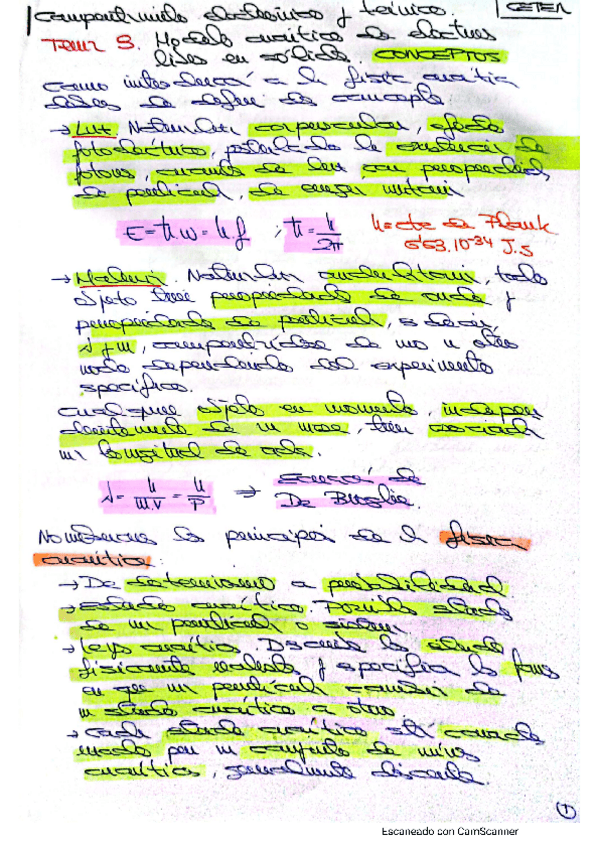 Comportamiento electrónico y térmico. CETEM
Tema 3. Modelo cuántico de electrones
libres en sólidos. CONCEPTOS
Como introducción a la física cuántica
se definen conceptos.
→ Luz. Naturaleza corpuscular, efecto
fotoeléctrico, postulado la existencia de
fotones, cuantos de luz con propiedades
de partícula, de energía
E = ħ.w = h f ; ħ = h/2π h = cte de Plank
6'63.10-34 J.S
→ Materia. Naturaleza ondulatoria, todo
objeto tiene propiedades de onda y
propiedades de partícula, es decir,
λ y m, comportándose de uno u otro
modo dependiendo del experimento
específico.
Cualquier objeto en momento, indepen
dientemente de su masa, tiene asociada
su longitud de onda.
λ = h/m.v = h/P ⇒ ecuación de
De Broglie.
los principios de la física
cuántica:
→ De determinismo a probabilidad
→ Estado cuántico. Posibles estados
de una partícula o sistema
→ Leyes cuánticas. Describe los estados
físicamente y especifica las formas
en que una partícula cambia de
un estado cuántico a otro.
→ Cada estado cuántico está
por un conjunto de núms
cuánticos, generalmente discretos.
1
Escaneado con CamScanner